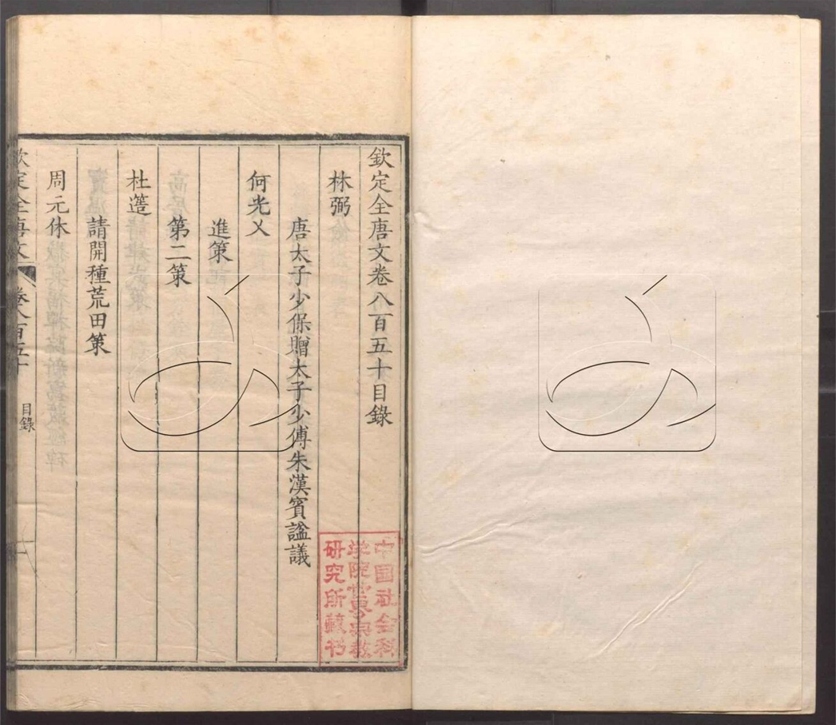 欽定全唐文卷八百五十目錄
林弼
唐太子少保贈太子少傅朱漢賓諡議
何光乂
進策
第二策
杜薳
請開種荒田策
周元休
欽定全唐文 卷八百五十 目錄
中国社会科
学院世界宗教
研究所藏书